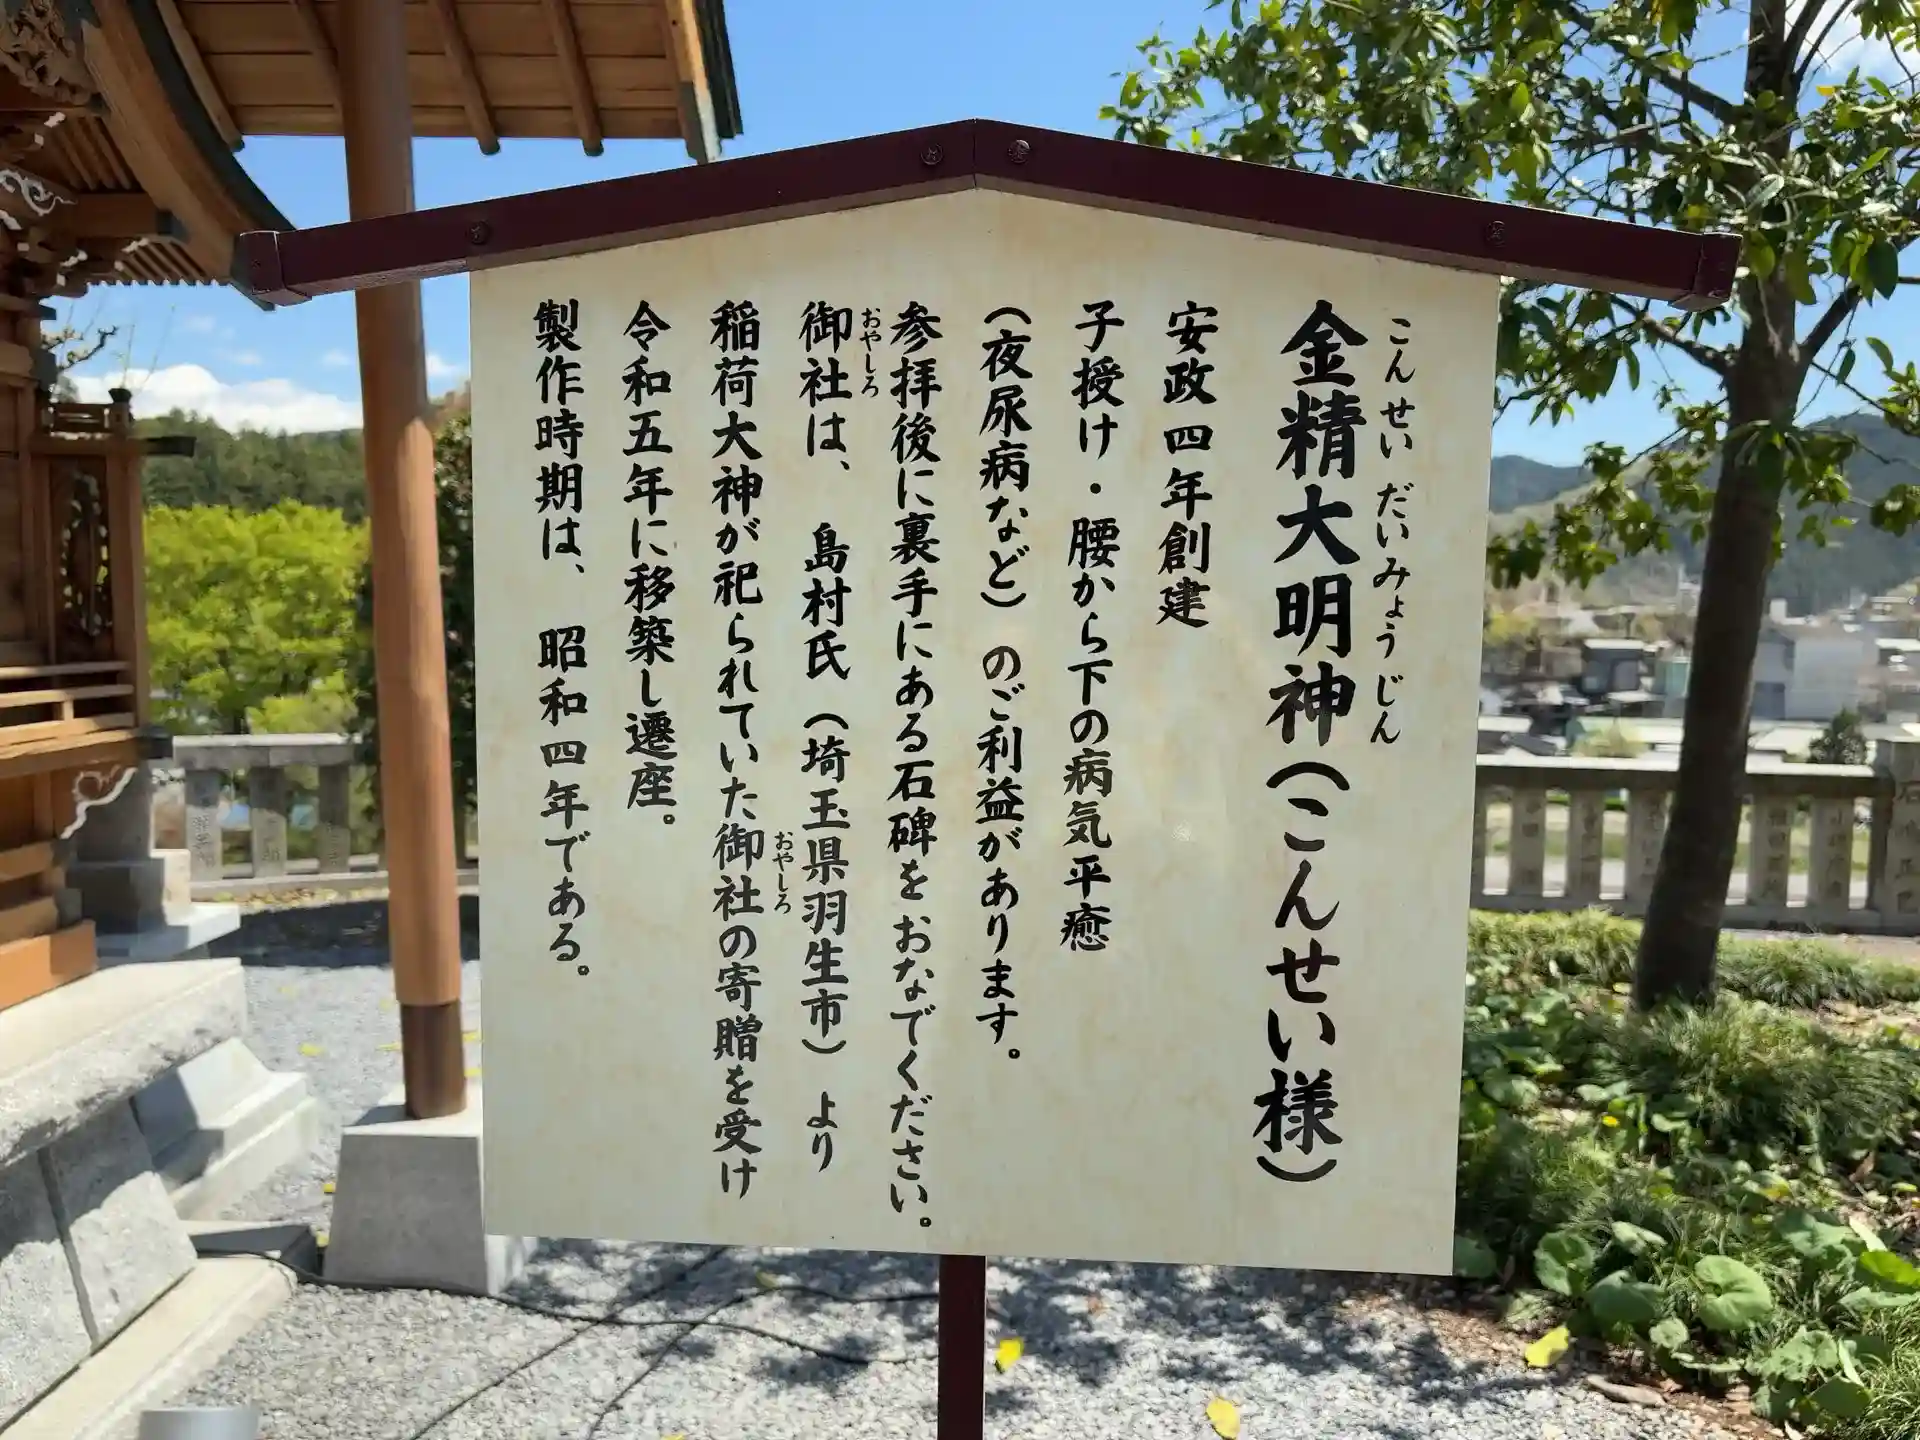 こんせいだいみょうじん
金精大明神(こんせい様)
安政四年創建
子授け・腰から下の病気平癒
(夜尿病など)のご利益があります。
参拝後に裏手にある石碑をおなでください。
おやしろ
御社は、島村氏(埼玉県羽生市)より
おやしろ
稲荷大神が祀られていた御社の寄贈を受け
令和五年に移築し遷座。
製作時期は、昭和四年である。